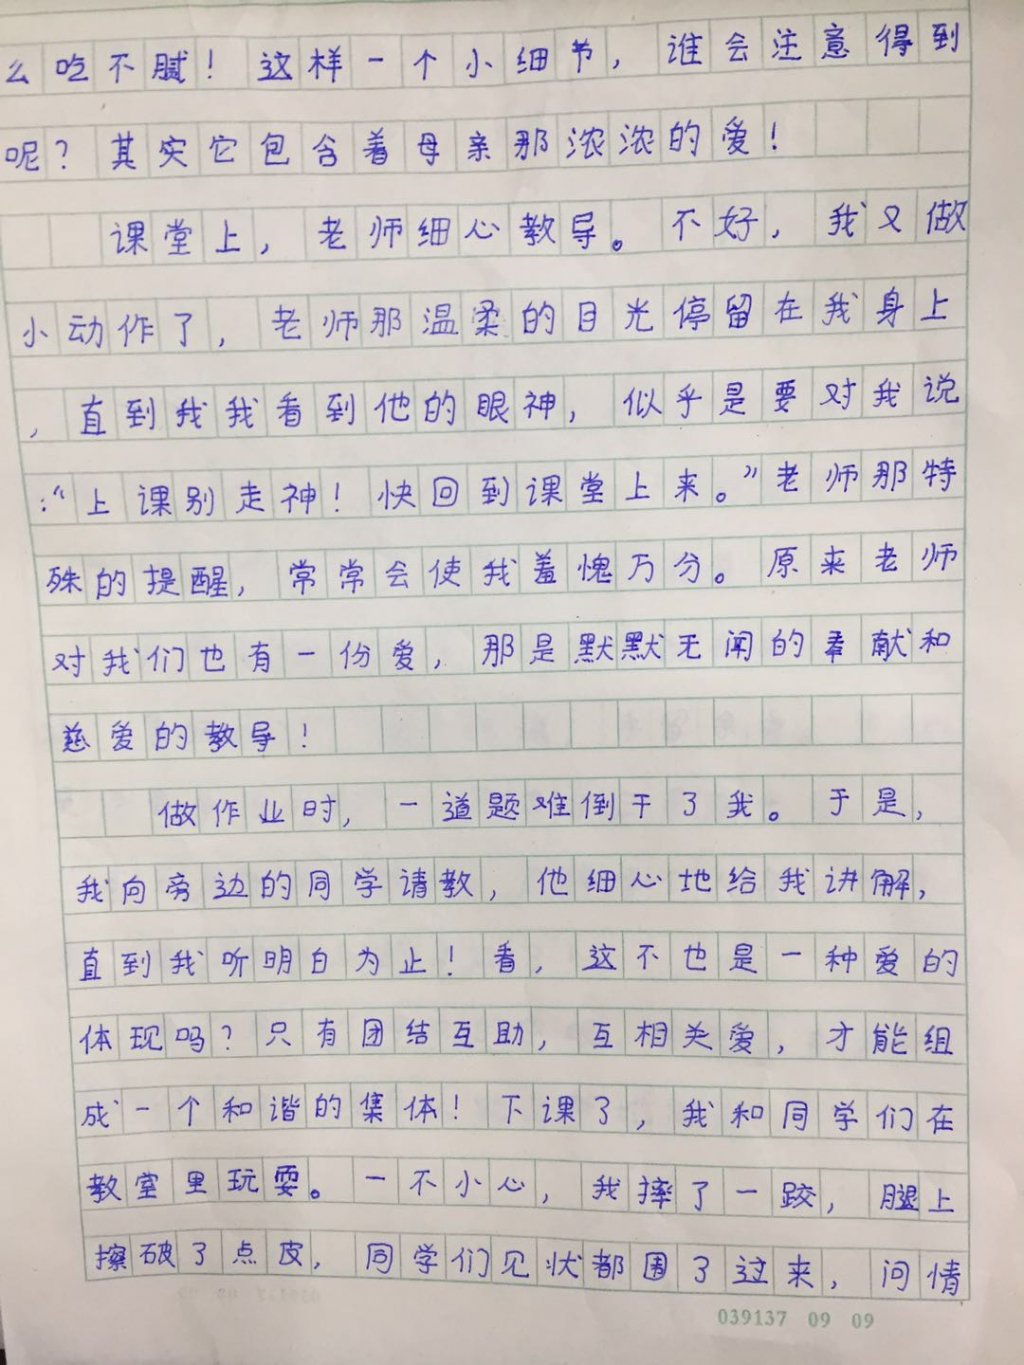 么吃不腻！这样一个小细节，谁会注意得到
呢？其实它包含着母亲那浓浓的爱！
课堂上，老师细心教导。不好，我又做
小动作了，老师那温柔的目光停留在我身上
，直到我我看到他的眼神，似乎是要对我说
：“上课别走神！快回到课堂上来。”老师那特
殊的提醒，常常会使我羞愧万分。原来老师
对我们也有一份爱，那是默默无闻的奉献和
慈爱的教导！
做作业时，一道题难倒干了我。于是，
我向旁边的同学请教，他细心地给我讲解，
直到我听明白为止！看，这不也是一种爱的
体现吗？只有团结互助，互相关爱，才能组
成一个和谐的集体！下课了，我和同学们在
教室里玩耍。一不小心，我摔了一跤，腿上
擦破了点皮，同学们见状都围了过来，问情
039137 09 09